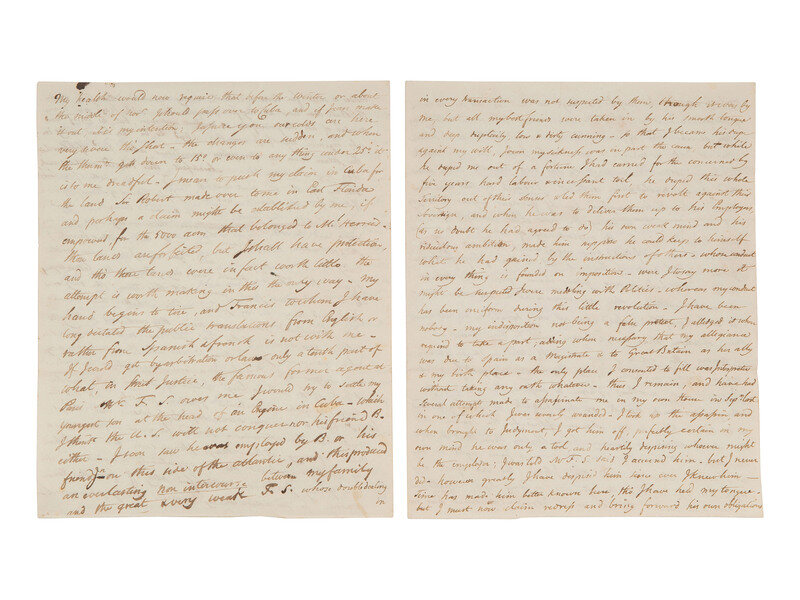 My health would now require that before the winter or about
the middle of Novr I should pass over to Cuba and if peace make
it out it is my intention. I assure you our colds are here
very severe this short. the changes are sudden and when
the thermr gets down to 15° or even to any thing under 25° it
is to me dreadful. I mean to push my claim in Cuba for
the land Sir Robert made over to me in East Florida
and perhaps a claim might be established by me, if
empowered for the 5000 acres that belonged to Mr
their lands are forfeited, but I shall have protection
and tho those lands were in fact worth little the
attempt is worth making in this the only way. My
hand begins to tire, and Francis to whom I have
long dictated the public translations from English or
rather from Spanish & french is not with me.
If I could get by arbitration or law only a tenth part of
what, in strict Justice, the famous former agent at
Mr F. S. owes me I would try to settle my
youngest son at the head of an Ingine in Cuba - which
I think the U. S. will not conquer nor his friend B.
either - I soon saw he was employed by B. or his
friends on this side of the atlantic, and this produced
an everlasting non intercourse between my family
and the great & very weak F. S. whose double dealing
in
in every transaction was not suspected by them, though it was by
me, but all my best friends were taken in by his smooth tongue
and deep duplicity, low & nasty cunning - so that I became his dupe
against my will, from my sickness was in part the cause but while
he duped me out of a fortune I had earned for the concerned by
five years hard labour & incessant toil, he duped this whole
Territory out of their senses & led them first to revolt against their
Sovereign, and when he was to deliver them up to his Employers
(as no doubt he had agreed to do) his own weak mind and his
ridiculous ambition, made him suppose he could keep to himself
what he had gained by the instructions of others - whose conduct
in every thing is founded on imposition. were I to say more it
might be suspected I were medling with Politics. whereas my conduct
has been uniform during this little revolution - I have been
nobody - my indisposition not being a false pretext, I alledged it when
required to take a part, adding when necessary that my allegiance
was due to Spain as a Magistrate & to Great Britain as her ally
& my birth place - the only place I consented to fill was Interpreter
without taking any oath whatever - thus I remain, and have had
Several attempts made to assassinate me in my own house in Sepr last
in one of which I was severely wounded - I took up the assassin and
when brought to Judgment, I got him off, perfectly certain in my
own mind he was only a tool, and heartily despising whoever might
be the employer; I was told Mr F. S. said I accused him, but I never
did. however greatly I have despised him since ever I knew him -
time has made him better known here, tho I have held my tongue -
but I must now claim redress and bring forward his own obligations